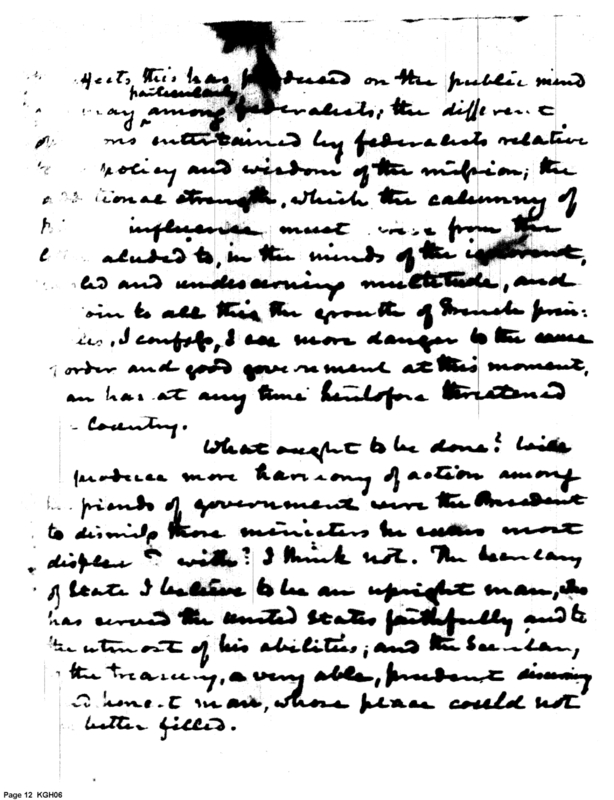 this has produced on the public mind
particularly
among federalists; the different
entertained by federalists relative
policy and wisdom of the mission; the
tional strength, which the calumny of
influence must from the
aluded to, in the minds of the ignorant,
and undiscerning multitude, and
to all this the growth of French prin-
I confess, I see more danger to the cause
order and good government at this moment,
an has at any time heretofore threatened
Country.
What ought to be done? Will
produce more harmony of action among
friends of government were the President
to dismiss those ministers he seems most
with? I think not. The Secretary
of State I believe to be an upright man, who
has served the United States faithfully and to
the utmost of his abilities; and the Secretary
the treasury, a very able, prudent discerning
honest man, whose place could not
better filled.
Page 12 KGH06